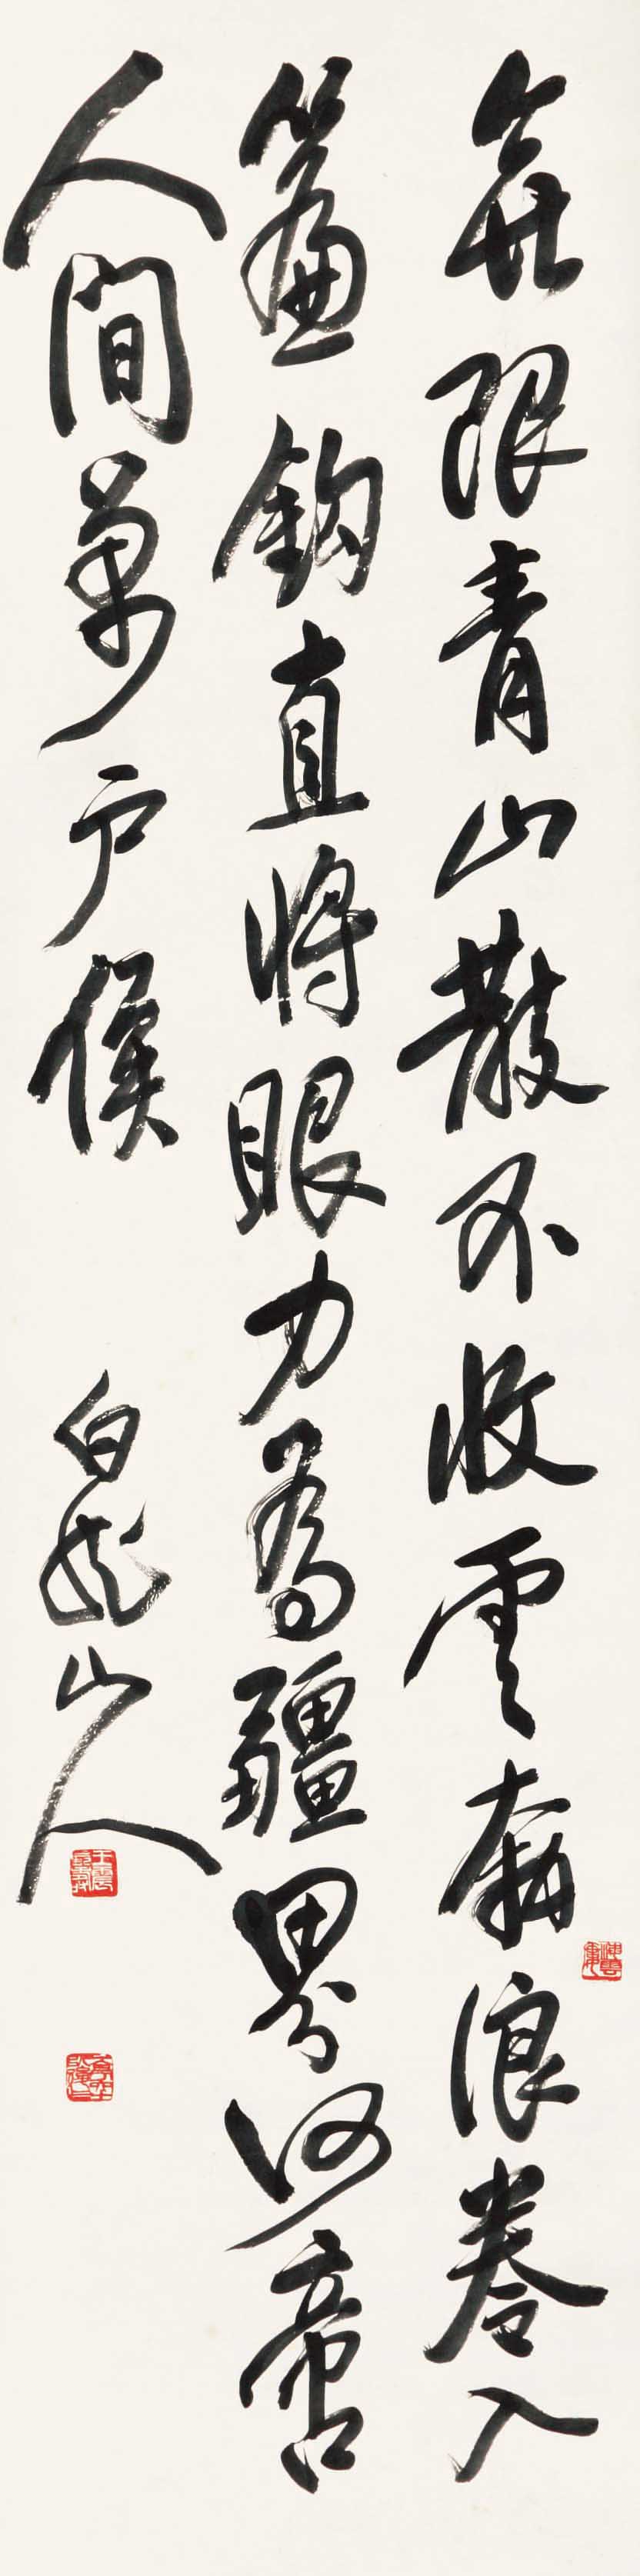 無限青山散不收雲奔浪卷入
簾鈎直將眼力為疆界何啻
人間萬戶侯
白龍山人